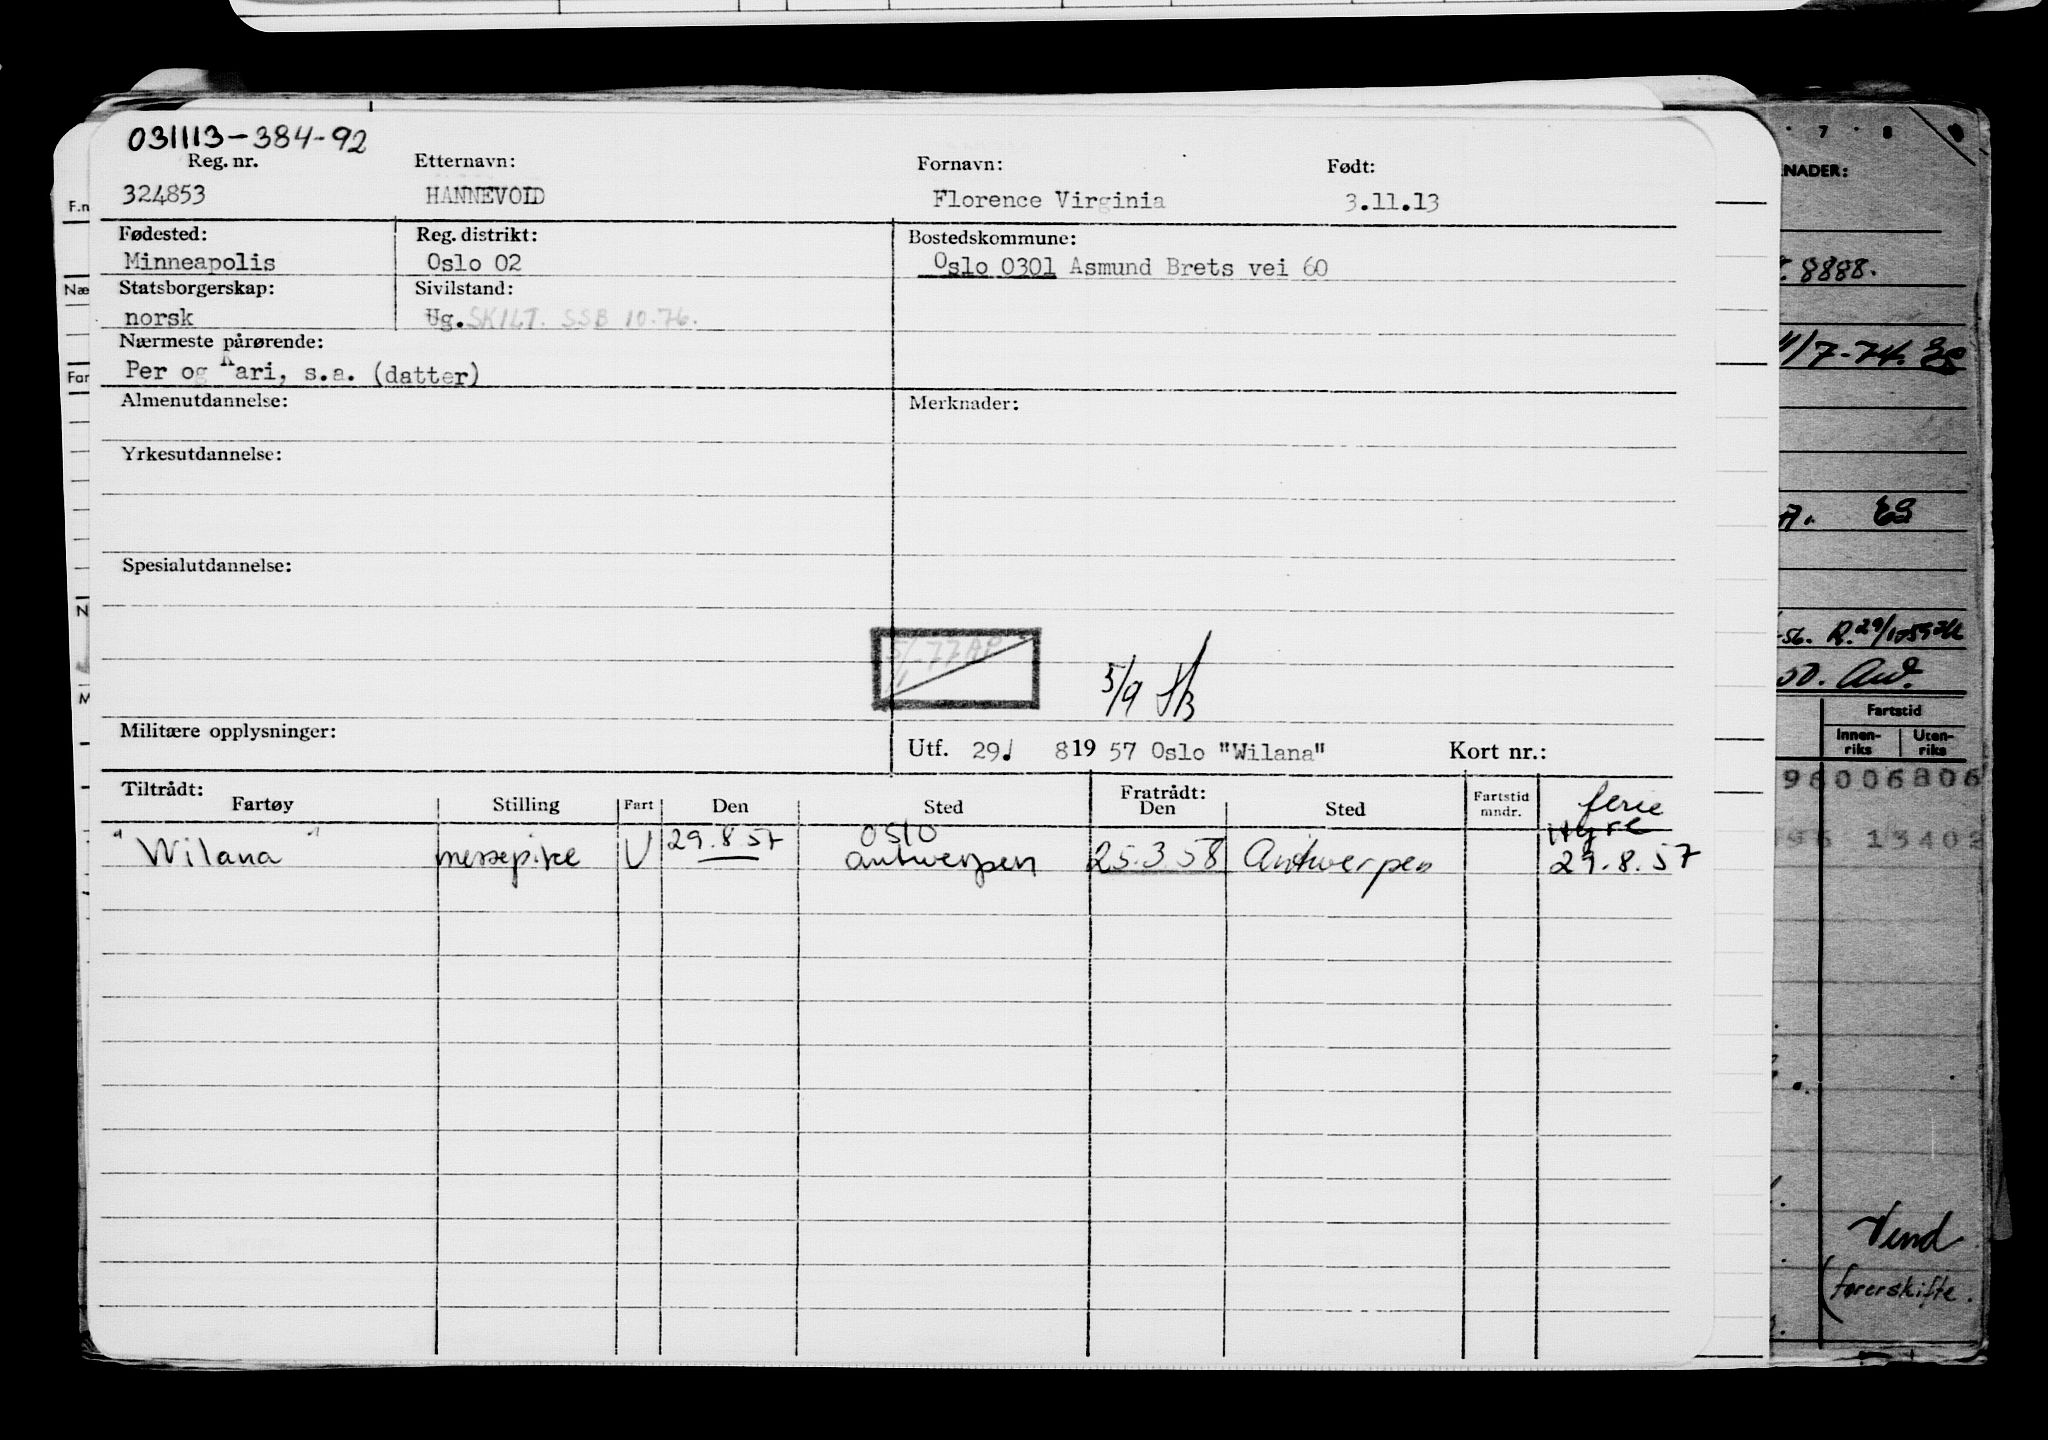 031113-384-92
Reg. nr. Etternavn: Fornavn: Født:
324853 HANNEVOLD Florence Virginia 3.11.13
Fødested: Reg. distrikt: Bostedskommune:
Minneapolis Oslo 02 Oslo 0301 Asmund Brets vei 60
Statsborgerskap: Sivilstand:
norsk Ug. SKILT. SSB 10.76.
Nærmeste pårørende:
Per og Kari, s.a. (datter)
Almenutdannelse: Merknader:
Yrkesutdannelse:
Spesialutdannelse:
5/1-77 AP
5/9
Militære opplysninger:
Utf. 29/ 8 19 57 Oslo "Wilana" Kort nr.:
Tiltrådt: Fratrådt:
Fartøy Stilling Fart Den Sted Den Sted Fartstid mndr. ferie
Hyre
"Wilana" messepike U 29.8.57 Oslo Antwerpen 25.3.58 Antwerpen 29.8.57
F.n
Næ
Far
N
M
7 8
KNADER:
8888.
11/7-74.
-56. R. 29/1-59
50. And.
Fartstid
Innen-riks Uten-riks
96006806
13402
Vend
(førerskifte.